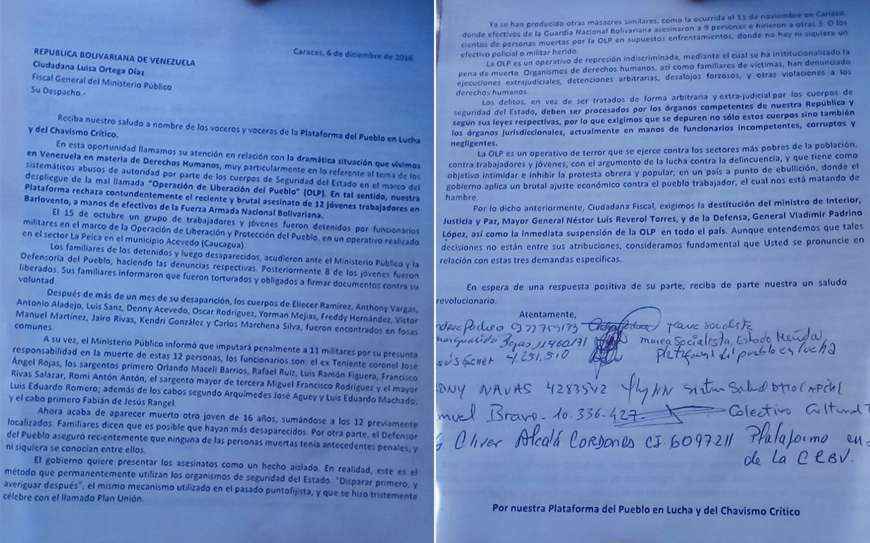 Caracas, 6 de diciembre de 2016
REPUBLICA BOLIVARIANA DE VENEZUELA
Ciudadana Luisa Ortega Díaz
Fiscal General del Ministerio Público
Su Despacho.-
Reciba nuestro saludo a nombre de los voceros y voceras de la Plataforma del Pueblo en Lucha
y del Chavismo Crítico.
En esta oportunidad llamamos su atención en relación con la dramática situación que vivimos
en Venezuela en materia de Derechos Humanos, muy particularmente en lo referente al tema de los
sistemáticos abusos de autoridad por parte de los cuerpos de Seguridad del Estado en el marco del
despliegue de la mal llamada "Operación de Liberación del Pueblo" (OLP). En tal sentido, nuestra
Plataforma rechaza contundentemente el reciente y brutal asesinato de 12 jóvenes trabajadores en
Barlovento, a manos de efectivos de la Fuerza Armada Nacional Bolivariana.
El 15 de octubre un grupo de trabajadores y jóvenes fueron detenidos por funcionarios
militares en el marco de la Operación de Liberación y Protección del Pueblo, en un operativo realizado
en el sector La Peica en el municipio Acevedo (Caucagua).
Los familiares de los detenidos y luego desaparecidos, acudieron ante el Ministerio Público y la
Defensoría del Pueblo, haciendo las denuncias respectivas. Posteriormente 8 de los jóvenes fueron
liberados. Sus familiares informaron que fueron torturados y obligados a firmar documentos contra su
voluntad.
Después de más de un mes de su desaparición, los cuerpos de Eliecer Ramírez, Anthony Vargas,
Antonio Aladejo, Luis Sanz, Denny Acevedo, Oscar Rodríguez, Yorman Mejías, Freddy Hernández, Víctor
Manuel Martínez, Jairo Rivas, Kendri González y Carlos Marchena Silva, fueron encontrados en fosas
comunes.
A su vez, el Ministerio Público informó que imputará penalmente a 11 militares por su presunta
responsabilidad en la muerte de estas 12 personas, los funcionarios son: el ex Teniente coronel José
Ángel Rojas, los sargentos primero Orlando Maceli Barrios, Rafael Ruiz, Luis Ramón Figuera, Francisco
Rivas Salazar, Romi Antón Antón, el sargento mayor de tercera Miguel Francisco Rodríguez y el mayor
Luis Eduardo Romero; además de los cabos segundo Arquímedes José Aguey y Luis Eduardo Machado;
y el cabo primero Fabián de Jesús Rangel.
Ahora acaba de aparecer muerto otro joven de 16 años, sumándose a los 12 previamente
localizados. Familiares dicen que es posible que hayan más desaparecidos. Por otra parte, el Defensor
del Pueblo aseguró recientemente que ninguna de las personas muertas tenía antecedentes penales, y
ni siquiera se conocían entre ellos.
El gobierno quiere presentar los asesinatos como un hecho aislado. En realidad, este es el
método que permanentemente utilizan los organismos de seguridad del Estado. "Disparar primero, y
averiguar después", el mismo mecanismo utilizado en el pasado puntofijista, y que se hizo tristemente
célebre con el llamado Plan Unión.
Ya se han producido otras masacres similares, como la ocurrida el 15 de noviembre en Cariaco,
donde efectivos de la Guardia Nacional Bolivariana asesinaron a 9 personas e hirieron a otras 3. O los
cientos de personas muertas por la OLP en supuestos enfrentamientos, donde no hay ni siquiera un
efectivo policial o militar herido.
La OLP es un operativo de represión indiscriminada, mediante el cual se ha institucionalizado la
pena de muerte. Organismos de derechos humanos, así como familiares de víctimas, han denunciado
ejecuciones extrajudiciales, detenciones arbitrarias, desalojos forzosos, y otras violaciones a los
derechos humanos.
Los delitos, en vez de ser tratados de forma arbitraria y extra-judicial por los cuerpos de
seguridad del Estado, deben ser procesados por los órganos competentes de nuestra República y
según sus leyes respectivas, por lo que exigimos que se depuren no sólo estos cuerpos sino también
los órganos jurisdiccionales, actualmente en manos de funcionarios incompetentes, corruptos y
negligentes.
La OLP es un operativo de terror que se ejerce contra los sectores más pobres de la población,
contra trabajadores y jóvenes, con el argumento de la lucha contra la delincuencia, y que tiene como
objetivo intimidar e inhibir la protesta obrera y popular, en un país a punto de ebullición, donde el
gobierno aplica un brutal ajuste económico contra el pueblo trabajador, el cual nos está matando de
hambre.
Por lo dicho anteriormente, Ciudadana Fiscal, exigimos la destitución del ministro de Interior,
Justicia y Paz, Mayor General Néstor Luis Reverol Torres, y de la Defensa, General Vladimir Padrino
López, así como la inmediata suspensión de la OLP en todo el país. Aunque entendemos que tales
decisiones no están entre sus atribuciones, consideramos fundamental que Usted se pronuncie en
relación con estas tres demandas específicas.
En espera de una respuesta positiva de su parte, reciba de parte nuestra un saludo
revolucionario.
Atentamente,
Marea Socialista
Marea Socialista, Estado Mérida
4251.510 Plataforma del pueblo en lucha
NAVAS 4283542
Bravo - 10.336.427 Colectivo Cultural
Oliver Alcalá Cordones CI 6097211 Plataforma en
de la CRBV.
Por nuestra Plataforma del Pueblo en Lucha y del Chavismo Crítico